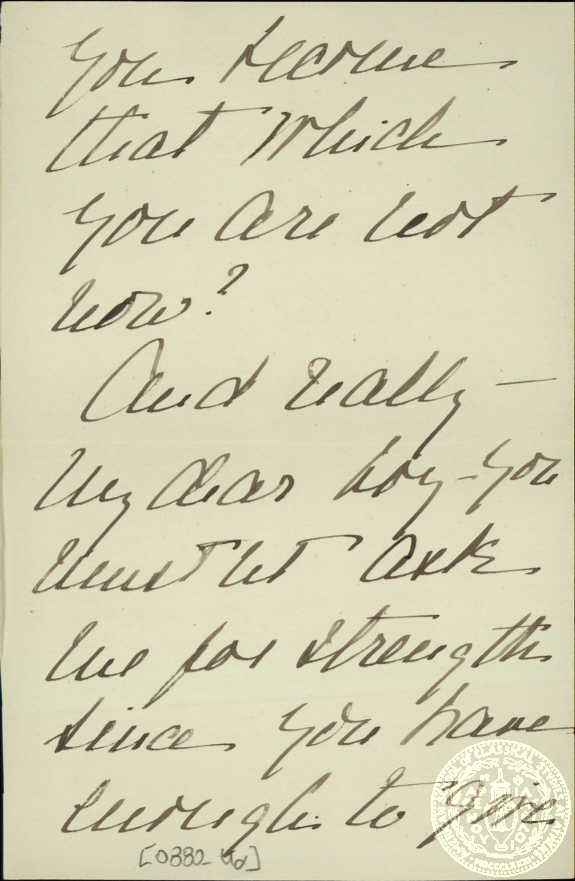 You become
that which
you are not
now?
And really —
My dear boy — you
must not ask
me for strength
since you have
enough to give